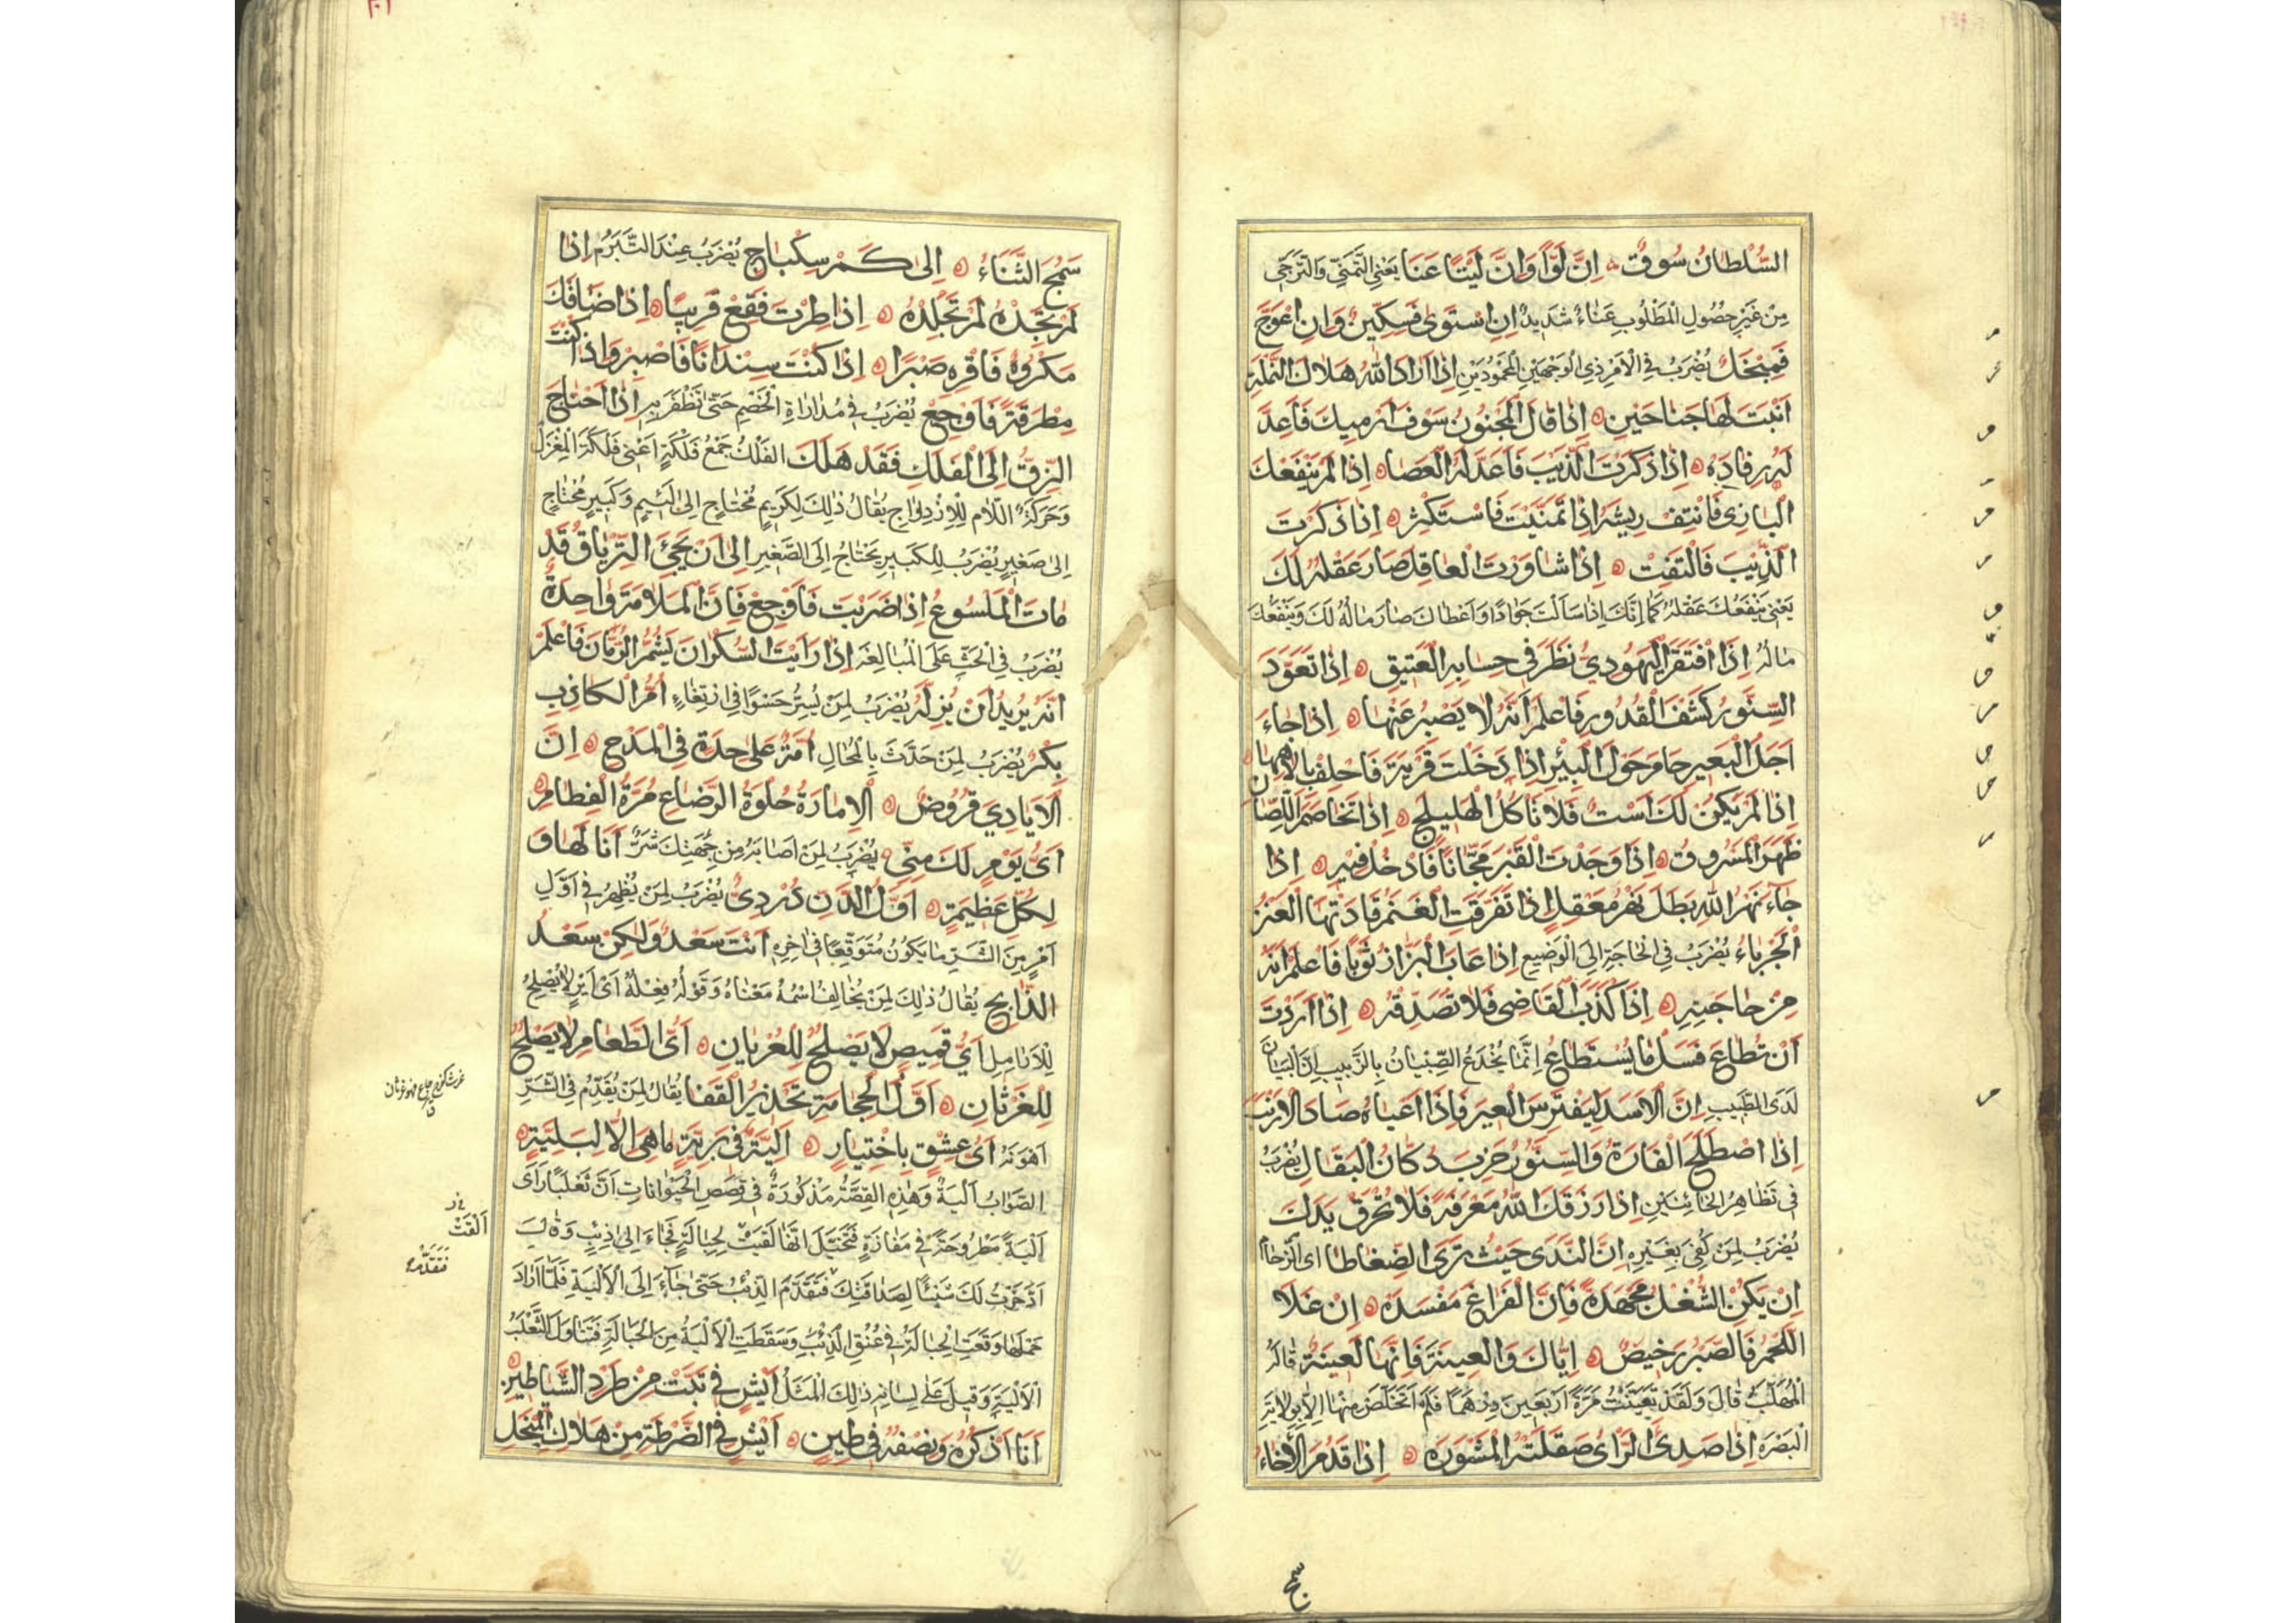 السُّلْطَانُ سُوقٌ ۞ اِنَّ لَوًّا وَاِنَّ لَيْتًا عَنَا يَعْنِي التَّمَنِّي وَالتَّرَجِّي
مِنْ غَيْرِ حُصُولِ الْمَطْلُوبِ عَنَاءٌ شَدِيدٌ اِنِ اسْتَوٰى فَسِكِّينٌ وَاِنِ اعْوَجَّ
فَمِنْجَلٌ يُضْرَبُ فِي الْاَمْرِ ذِي الْوَجْهَيْنِ الْمَحْمُودَيْنِ اِذَا اَرَادَ اللّٰهُ هَلَاكَ النَّمْلَةِ
اَنْبَتَ لَهَا جَنَاحَيْنِ ۞ اِذَا قَالَ الْمَجْنُونُ سَوْفَ اَرْمِيكَ فَاَعِدَّ
لَهُ رِفَادَه ۞ اِذَا ذَكَرْتَ الذِّيبَ فَاَعِدَّ لَهُ الْعَصَا ۞ اِذَا لَمْ يَنْفَعْكَ
الْبَازِي فَانْتِفْ رِيشَهُ اِذَا تَمَنَّيْتَ فَاسْتَكْثِرْ ۞ اِذَا ذَكَرْتَ
الذِّيبَ فَالْتَفِتْ ۞ اِذَا شَاوَرْتَ الْعَاقِلَ صَارَ عَقْلُهُ لَكَ
يَعْنِي يَنْفَعُكَ عَقْلُهُ كَمَا اِنَّكَ اِذَا سَاَلْتَ جَوَادًا وَاَعْطَاكَ صَارَ مَالُهُ لَكَ وَيَنْفَعُكَ
مَالُهُ اِذَا افْتَقَرَ الْيَهُودِيُّ نَظَرَ فِي حِسَابِهِ الْعَتِيقِ ۞ اِذَا تَعَوَّدَ
السِّنَّوْرُ كَشْفَ الْقُدُورِ فَاعْلَمْ اَنَّهُ لَا يَصْبِرُ عَنْهَا ۞ اِذَا جَاءَ
اَجَلُ الْبَعِيرِ حَامَ حَوْلَ الْبِئْرِ اِذَا دَخَلْتَ قَرْيَةً فَاحْلِفْ بِاِلٰهِهَا ۞
اِذَا لَمْ يَكُنْ لَكَ اَسْتٌ فَلَا تَاْكُلِ الْهَلِيلَجَ ۞ اِذَا تَخَاصَمَ اللِّصَّانِ
ظَهَرَ الْمَسْرُوقُ ۞ اِذَا وَجَدْتَ الْقَبْرَ مَجَّانًا فَادْخُلْ فِيهِ ۞ اِذَا
جَاءَ نَهْرُ اللّٰهِ بَطَلَ نَهْرُ مَعْقِلٍ اِذَا تَفَرَّقَتِ الْغَنَمُ قَادَتْهَا الْعَنْزُ
الْجَرْبَاءُ يُضْرَبُ فِي الْحَاجَةِ اِلَى الْوَضِيعِ اِذَا عَابَ الْبَزَّازُ ثَوْبًا فَاعْلَمْ اَنَّهُ
مِنْ حَاجَتِهِ ۞ اِذَا كَذَبَ الْقَاضِي فَلَا تُصَدِّقْهُ ۞ اِذَا اَرَدْتَ
اَنْ تُطَاعَ فَسَلْ مَا يُسْتَطَاعُ اِنَّمَا يُخْدَعُ الصِّبْيَانُ بِالزَّبِيبِ
لَدَى الطَّبِيبِ اِنَّ الْاَسَدَ لَيَفْتَرِسُ الْعَيْرَ فَاِذَا اَعْيَاهُ صَادَ الْاَرْنَبَ
اِذَا اصْطَلَحَ الْفَارَةُ وَالسِّنَّوْرُ خَرِبَ دُكَّانُ الْبَقَّالِ يُضْرَبُ
فِي تَظَاهُرِ الْخَائِنَيْنِ اِذَا رَزَقَكَ اللّٰهُ مَغْرَفَةً فَلَا تُحْرِقْ يَدَكَ
يُضْرَبُ لِمَنْ كُفِيَ بِغَيْرِهِ اِنَّ النَّدٰى حَيْثُ تَرَى الضِّغَاطَا اى الزِّحَامَ
اِنْ يَكُنِ الشُّغْلُ مَجْهَدَةً فَاِنَّ الْفَرَاغَ مَفْسَدَة ۞ اِنْ غَلَا
اللَّحْمُ فَالصَّبْرُ رَخِيصٌ ۞ اِيَّاكَ وَالْعِينَةَ فَاِنَّهَا لَعِينَةٌ قَالَهُ
الْمُهَلَّبُ قَالَ وَلَقَدْ تَعَيَّنْتُ مَرَّةً اَرْبَعِينَ دِرْهَمًا فَلَمْ اَتَخَلَّصْ مِنْهَا اِلَّا بِوِلَايَةِ
الْبَصْرَةِ اِذَا صَدِئَ الرَّاْىُ صَقَلَتْهُ الْمَشْوَرَه ۞ اِذَا قَدُمَ الْاِخَاءُ
سمج
سَمُجَ الثَّنَاءُ ۞ اِلٰى كَمْ سِكْبَاجٌ يُضْرَبُ عِنْدَ التَّبَرُّمِ اِذَا
لَمْ تَجِدْهُ لَمْ تَجْلِدْهُ ۞ اِذَا طِرْتَ فَقَعْ قَرِيبًا ۞ اِذَا ضَافَكَ
مَكْرُوهٌ فَاقْرِهِ صَبْرًا ۞ اِذَا كُنْتَ سِنْدَانًا فَاصْبِرْ وَاِذَا كُنْتَ
مِطْرَقَةً فَاَوْجِعْ يُضْرَبُ فِي مُدَارَاةِ الْخَصْمِ حَتّٰى تَظْفَرَ بِهِ اِذَا احْتَاجَ
الزِّقُّ اِلَى الْفَلَكِ فَقَدْ هَلَكَ الفَلَكُ جَمْعُ فَلْكَةٍ اَعْنِي فَلْكَةَ الْمِغْزَلِ
وَحَرَكَةُ اللَّامِ لِلْاِزْدِوَاجِ يُقَالُ ذٰلِكَ لِكَرِيمٍ مُحْتَاجٍ اِلٰى لَئِيمٍ وَكَبِيرٍ مُحْتَاجٍ
اِلٰى صَغِيرٍ يُضْرَبُ لِلْكَبِيرِ يَحْتَاجُ اِلَى الصَّغِيرِ اِلٰى اَنْ يَجِيءَ التِّرْيَاقُ قَدْ
مَاتَ الْمَلْسُوعُ اِذَا ضَرَبْتَ فَاَوْجِعْ فَاِنَّ الْمَلَامَةَ وَاحِدَةٌ
يُضْرَبُ فِي الْحَثِّ عَلَى الْمُبَالَغَه اِذَا رَاَيْتَ السَّكْرَانَ يَشُمُّ الرُّمَّانَ فَاعْلَمْ
اَنَّهُ يُرِيدُ اَنْ يُبْزَلَهُ يُضْرَبُ لِمَنْ يُسِرُّ حَسْوًا فِي ارْتِغَاءٍ اُمُّ الْكَاذِبِ
بِكْرٌ يُضْرَبُ لِمَنْ حَدَّثَ بِالْمُحَالِ اُمَّةٌ عَلٰى حِدَةٍ فِي الْمَدْحِ ۞ اِنَّ
الْاَيَادِيَ قُرُوضٌ ۞ الْاِمَارَةُ حُلْوَةُ الرَّضَاعِ مُرَّةُ الْفِطَامِ ۞
اَىُّ يَوْمٍ لَكَ مِنِّي يُضْرَبُ لِمَنْ اَصَابَهُ مِنْ جِهَتِكَ شَرٌّ اَنَا لَهَا وَ
لِكُلِّ عَظِيمَةٍ ۞ اَوَّلُ الدَّنِّ دُرْدِيٌّ يُضْرَبُ لِمَنْ يُظْهِرُ فِي اَوَّلِ
اَمْرٍ مِنَ الشَّرِّ مَا يَكُونُ مُتَوَقَّعًا فِي اٰخِرِهِ اَنْتَ سَعْدٌ وَلٰكِنْ سَعْدُ
الذَّابِحِ يُقَالُ ذٰلِكَ لِمَنْ يُخَالِفُ اسْمُهُ مَعْنَاهُ وَقَوْلُهُ فِعْلَهُ
اَيُّ قَمِيصٍ لَا يَصْلُحُ لِلْعُرْيَانِ ۞ اَىُّ الطَّعَامِ لَا يَصْلُحُ
لِلْغَرْثَانِ ۞ اَوَّلُ الْحِجَامَةِ تَحْذِيرُ الْقَفَا يُقَالُ لِمَنْ يُقَدِّمُ فِي الشَّرِّ
اَهْوَنَهُ اَىُّ عِشْقٍ بِاخْتِيَارٍ ۞ اَلِيَّةٌ فِي بَرِيَّةٍ مَا هِيَ اِلَّا لِبَلِيَّةٍ ۞
الصَّوَابُ اَلْيَةٌ وَهٰذِهِ الْقِصَّةُ مَذْكُورَةٌ فِي قِصَصِ الْحَيْوَانَاتِ اَنَّ ثَعْلَبًا رَاٰى
اَلْيَةً مَطْرُوحَةً فِي مَفَازَةٍ فَتَخَيَّلَ اَنَّهَا لِحِبَالَةٍ فَجَاءَ اِلٰى ذِئْبٍ وَقَالَ
اَدَّخَرْتُ لَكَ شَيْئًا لِصَدَاقَتِكَ فَتَقَدَّمَ الذِّئْبُ حَتّٰى جَاءَ اِلَى الْاَلْيَةِ فَلَمَّا اَرَادَ
حَمْلَهَا وَقَعَتِ الْحِبَالَةُ فِي عُنُقِ الذِّئْبِ وَسَقَطَتِ الْاَلْيَةُ مِنَ الْحِبَالَةِ فَتَنَاوَلَ الثَّعْلَبُ
الْاَلْيَةَ وَقِيلَ عَلٰى لِسَانِهِ ذٰلِكَ الْمَثَلُ اَيْشٍ فِي تَبَّتْ مِنْ طَرْدِ الشَّيَاطِينِ ۞
اَنَا اَذْكُرُهُ وَنِصْفُهُ فِي طِينٍ ۞ اَيْشٍ فِي الضَّرْطَةِ مِنْ هَلَاكِ الْمِنْجَلِ